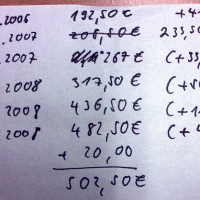 .2006 192,50€ +4
.2007 208,50€ 233,50
.2007 267€ (+33,
.2008 317,50€ (+5
.2008 436,50€ (+1
.2008 482,50€ (+4
+ 20,00
502,50€